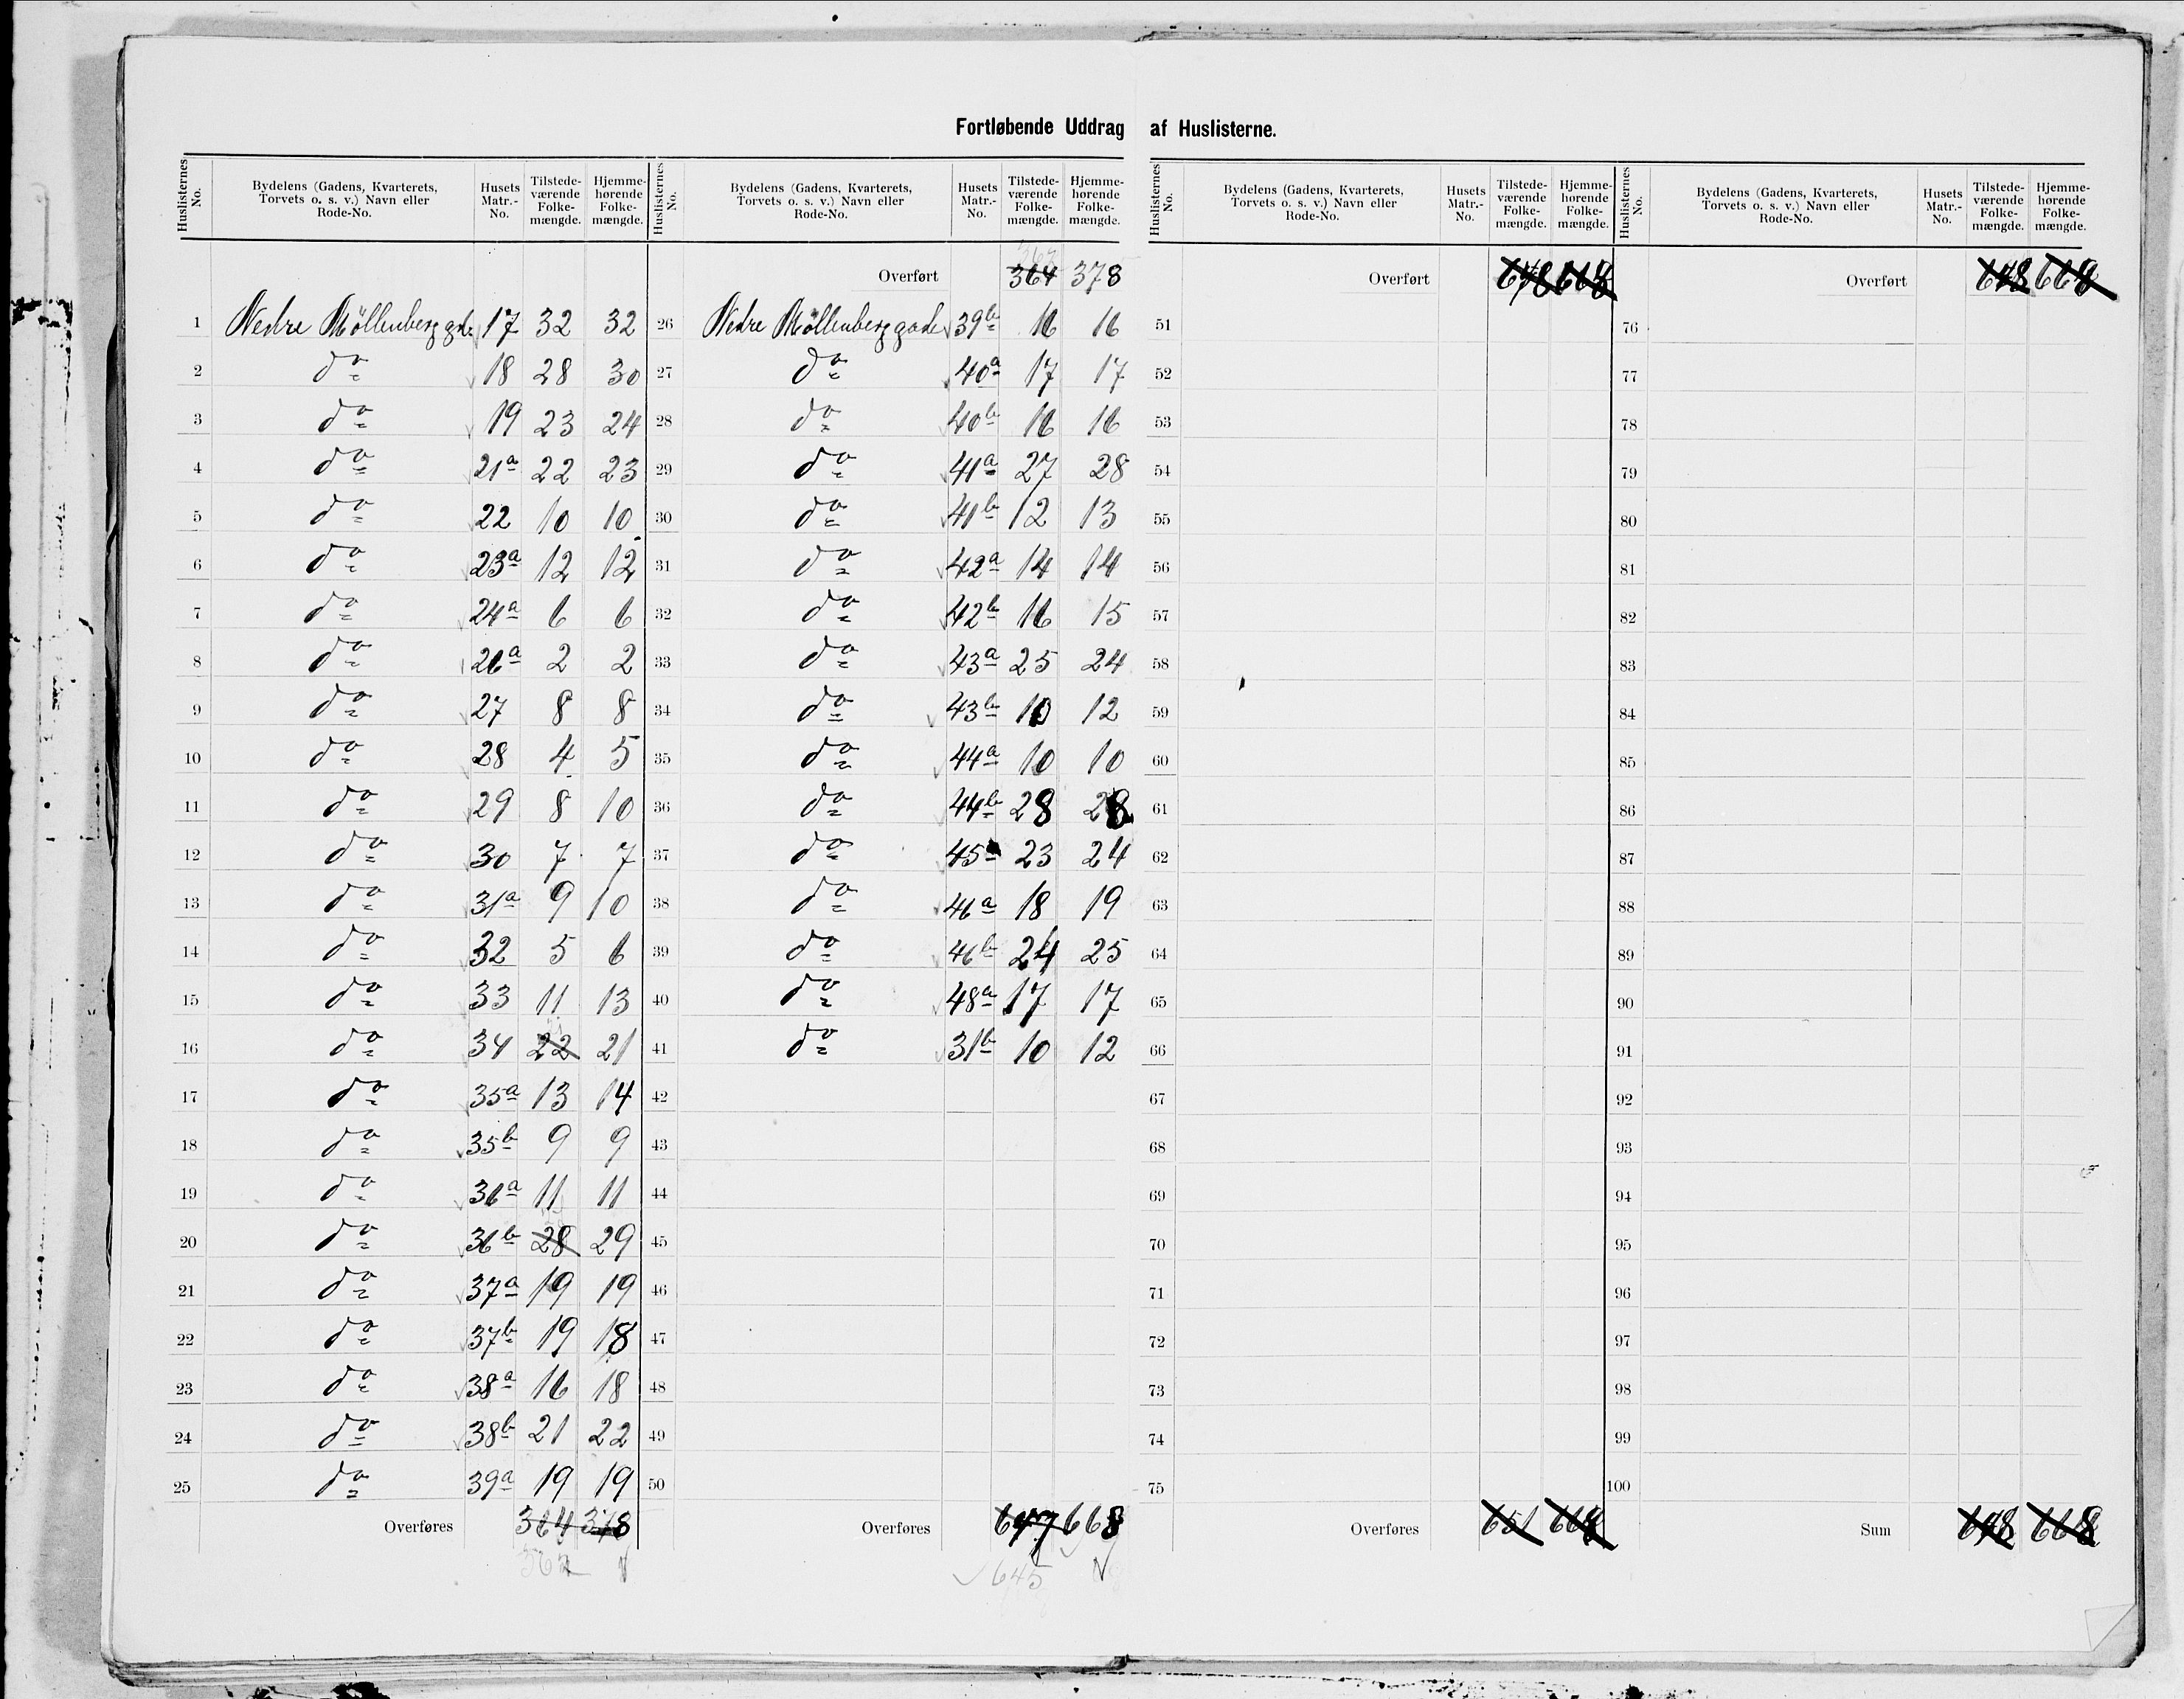 Fortløbende Uddrag af Huslisterne.
Huslisternes No. | Bydelens (Gadens, Kvarterets, Torvets o. s. v.) Navn eller Rode-No. | Husets Matr.-No. | Tilstedeværende Folkemængde. | Hjemmehørende Folkemængde.
1 Nedre Möllenberg gde. 17 32 32
2 do 18 28 30
3 do 19 23 24
4 do 21a 22 23
5 do 22 10 10
6 do 23a 12 12
7 do 24a 6 6
8 do 26a 2 2
9 do 27 8 8
10 do 28 4 5
11 do 29 8 10
12 do 30 7 7
13 do 31a 9 10
14 do 32 5 6
15 do 33 11 13
16 do 34 22 21
17 do 35a 13 14
18 do 35b 9 9
19 do 36a 11 11
20 do 36b 28 29
21 do 37a 19 19
22 do 37b 19 18
23 do 38a 16 18
24 do 38b 21 22
25 do 39a 19 19
Overføres 364 378
362
Huslisternes No. | Bydelens (Gadens, Kvarterets, Torvets o. s. v.) Navn eller Rode-No. | Husets Matr.-No. | Tilstedeværende Folkemængde. | Hjemmehørende Folkemængde.
Overført 364 378
26 Nedre Möllenberg gade 39b 16 16
27 do 40a 17 17
28 do 40b 16 16
29 do 41a 27 28
30 do 41b 12 13
31 do 42a 14 14
32 do 42b 16 15
33 do 43a 25 24
34 do 43b 10 12
35 do 44a 10 10
36 do 44b 28 28
37 do 45 23 24
38 do 46a 18 19
39 do 46b 24 25
40 do 48a 17 17
41 do 31b 10 12
42
43
44
45
46
47
48
49
50
Overføres 647 668
645
Huslisternes No. | Bydelens (Gadens, Kvarterets, Torvets o. s. v.) Navn eller Rode-No. | Husets Matr.-No. | Tilstedeværende Folkemængde. | Hjemmehørende Folkemængde.
Overført 648 668
51
52
53
54
55
56
57
58
59
60
61
62
63
64
65
66
67
68
69
70
71
72
73
74
75
Overføres 651 668
Huslisternes No. | Bydelens (Gadens, Kvarterets, Torvets o. s. v.) Navn eller Rode-No. | Husets Matr.-No. | Tilstedeværende Folkemængde. | Hjemmehørende Folkemængde.
Overført 648 668
76
77
78
79
80
81
82
83
84
85
86
87
88
89
90
91
92
93
94
95
96
97
98
99
100
Sum 648 668